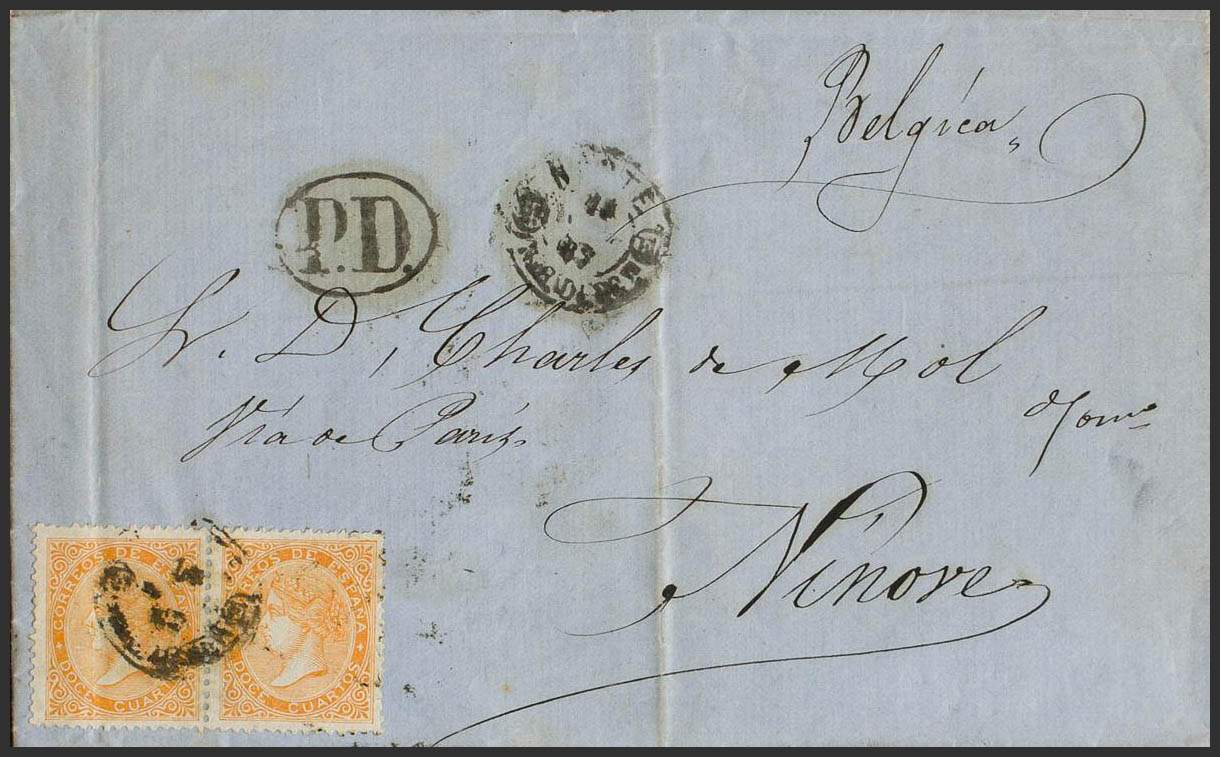 Belgica
P.D.
Sr. D, Charles de Mol
Via de Paris
Ninove
CORREOS DE ESPAÑA
DOCE CUARTOS
CORREOS DE ESPAÑA
DOCE CUARTOS